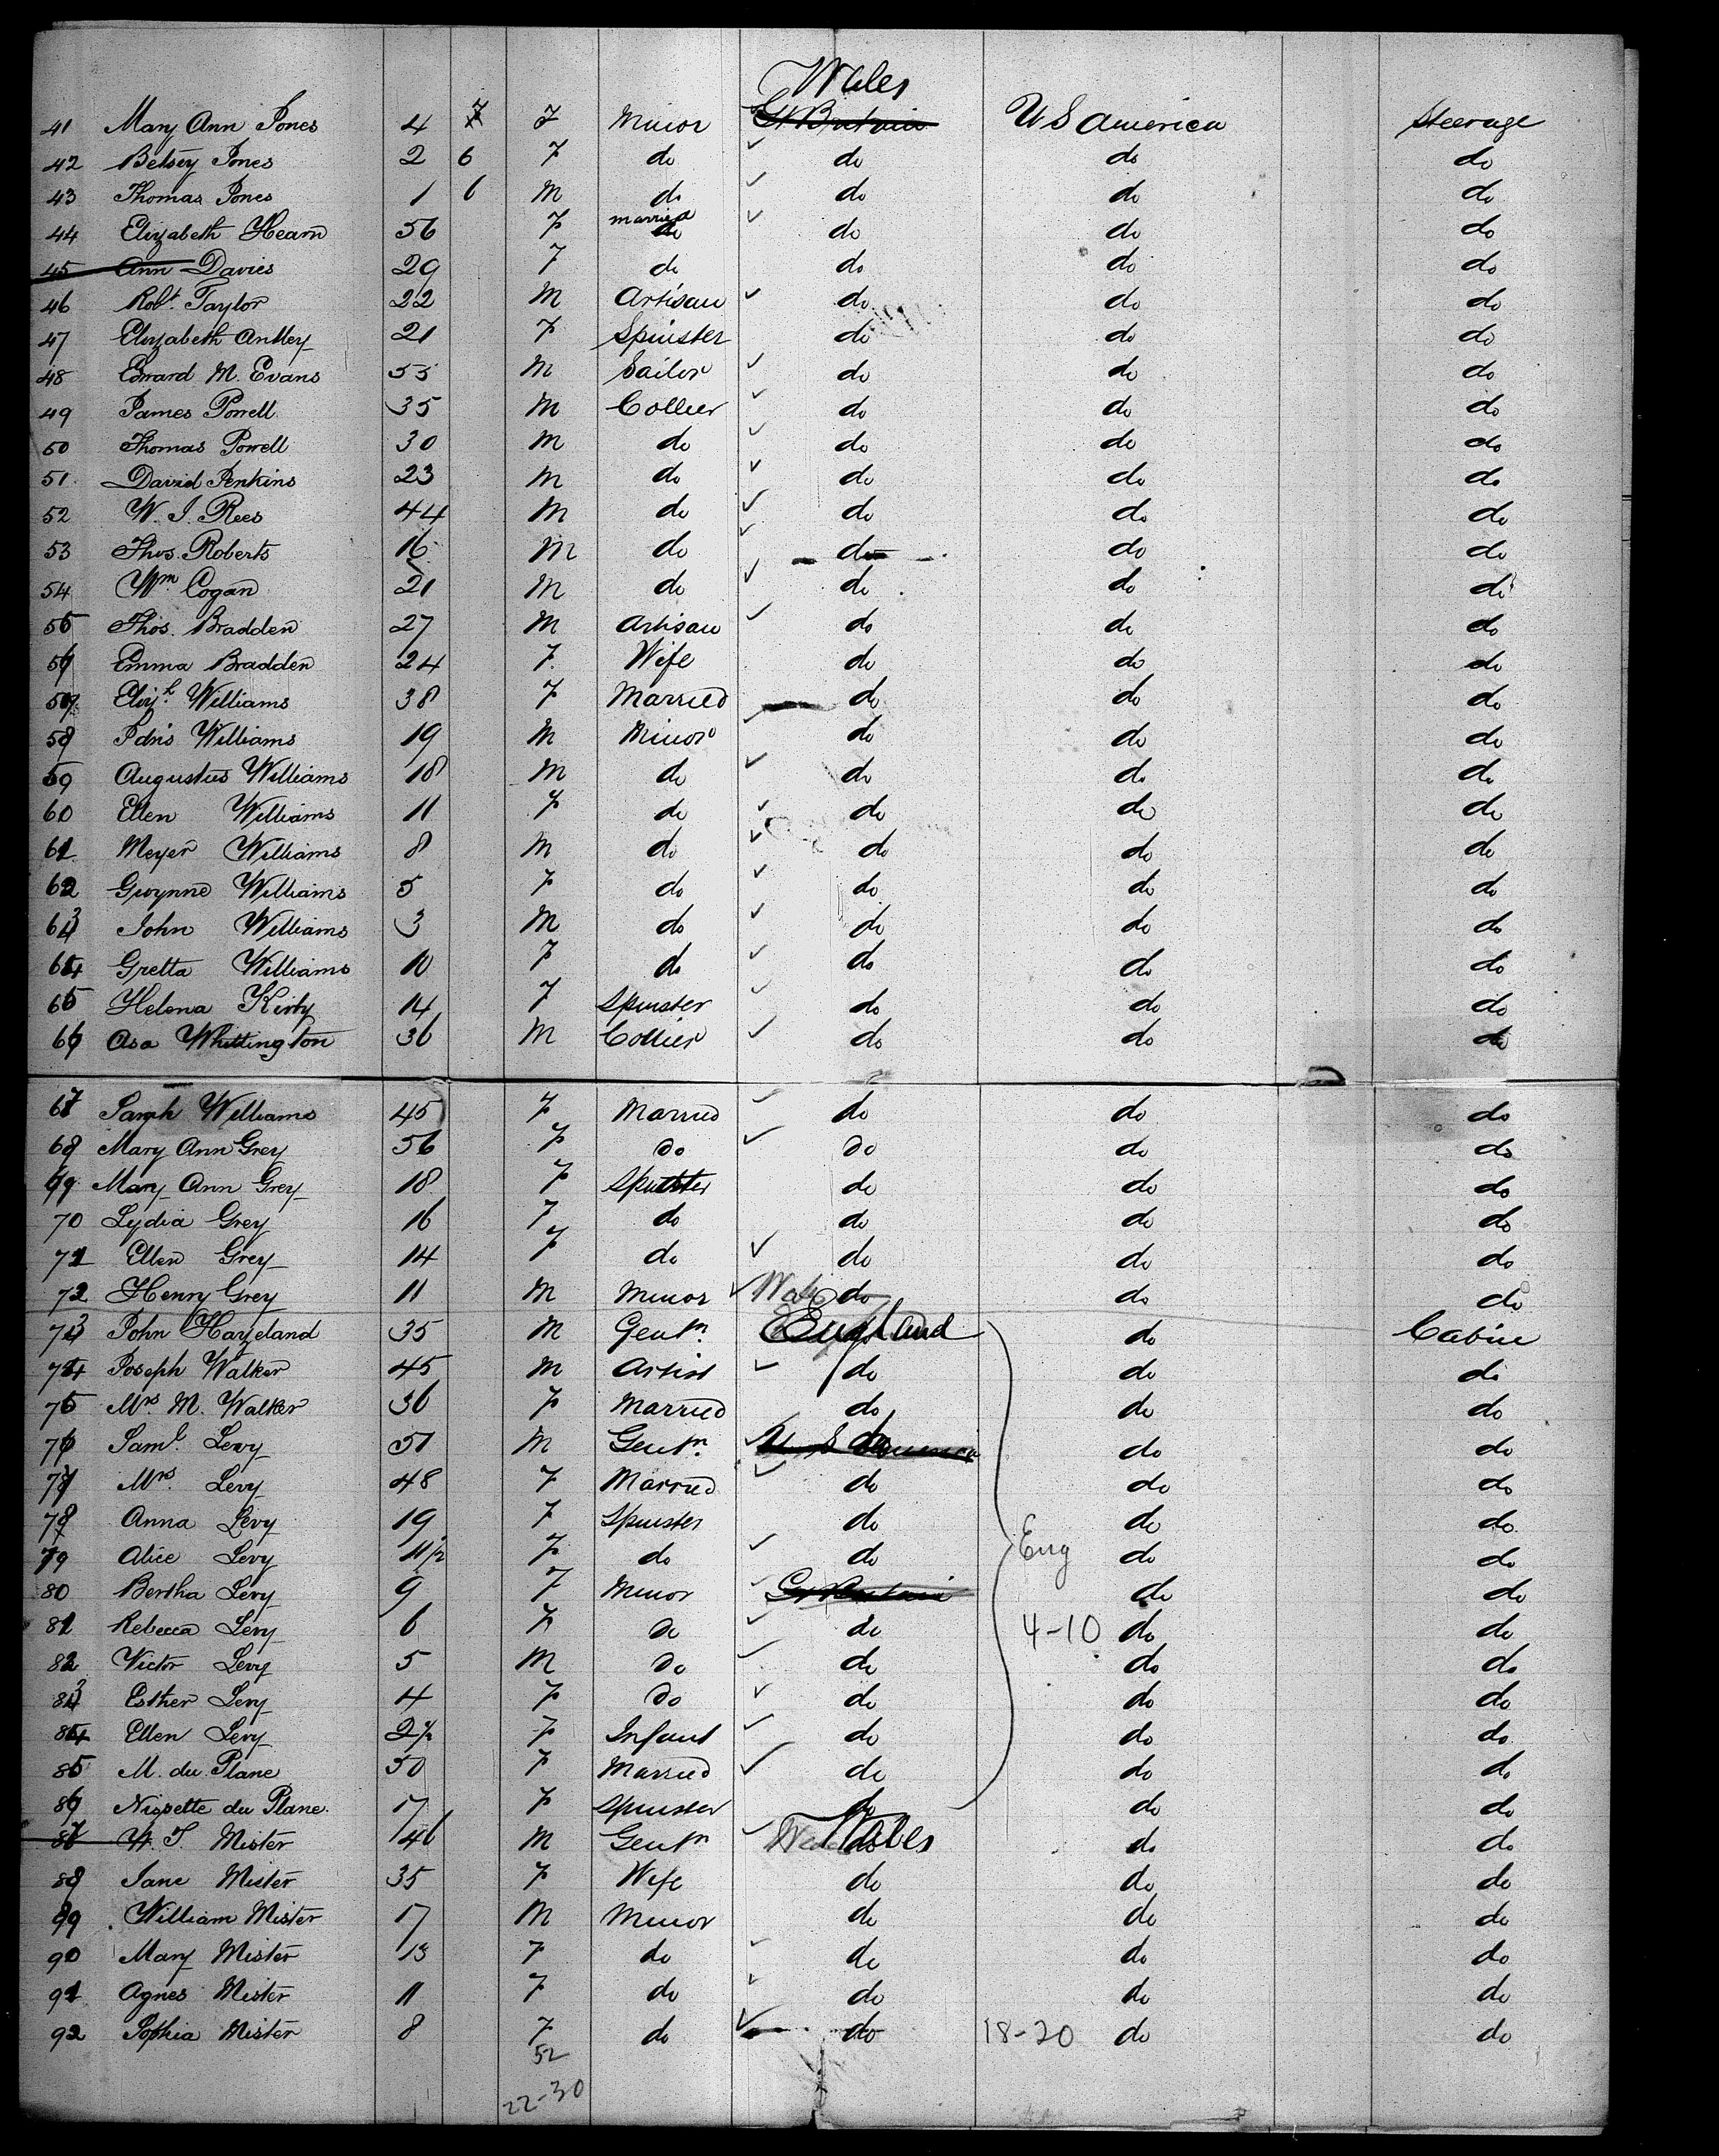 Wales
41 Mary Ann Jones 4 7 F Minor Gt Britain U S America Steerage
42 Betsey Jones 2 6 F do do do do
43 Thomas Jones 1 6 M do do do do
44 Elizabeth Hearn 56 F married do do do
45 Ann Davies 29 F do do do do
46 Robt. Taylor 22 M Artisan do do do
47 Elizabeth Antley 21 F Spinster do do do
48 Edward M. Evans 55 M Sailor do do do
49 James Powell 35 M Collier do do do
50 Thomas Powell 30 M do do do do
51 David Jenkins 23 M do do do do
52 W. J. Rees 44 M do do do do
53 Thos. Roberts 16 M do do do do
54 Wm Cogan 21 M do do do do
55 Thos. Bradden 27 M Artisan do do do
56 Emma Bradden 24 F. Wife do do do
57 Elizh. Williams 38 F Married do do do
58 Idris Williams 19 M Minor do do do
59 Augustus Williams 18 M do do do do
60 Ellen Williams 11 F do do do do
61 Meyer Williams 8 M do do do do
62 Gwynne Williams 5 F do do do do
63 John Williams 3 M do do do do
64 Gretta Williams 10 F do do do do
65 Helena Kirby 14 F Spinster do do do
66 Asa Whittington 36 M Collier do do do
67 Sarah Williams 45 F Married do do do
68 Mary Ann Grey 56 F do do do do
69 Mary Ann Grey 18 F Spinster do do do
70 Lydia Grey 16 F do do do do
71 Ellen Grey 14 F do do do do
72 Henry Grey 11 M Minor do do do
73 John Hazeland 35 M Gentn. England do Cabin
74 Joseph Walker 45 M Artist do do do
75 Mrs M. Walker 36 F Married do do do
76 Saml. Levy 51 M Gentn. U S America do do
77 Mrs. Levy 48 F Married do do do
78 Anna Levy 19 F Spinster do do do
79 Alice Levy 11½ F do do Eng do do
80 Bertha Levy 9 F Minor Gt Britain do do
81 Rebecca Levy 6 F do do 4-10 do do
82 Victor Levy 5 M do do do do
83 Esther Levy 4 F do do do do
84 Ellen Levy 2½ F Infant do do do
85 M. du Plane 50 F Married do do do
86 du Plane. 17 F Spinster do do do
87 Mister 46 M Gentn Wales do do
88 Jane Mister 35 F Wife do do do
89 William Mister 17 M Minor do do do
90 Mary Mister 13 F do do do do
91 Agnes Mister 11 F do do do do
92 Sophia Mister 8 F do do 18-20 do do
52
22-30